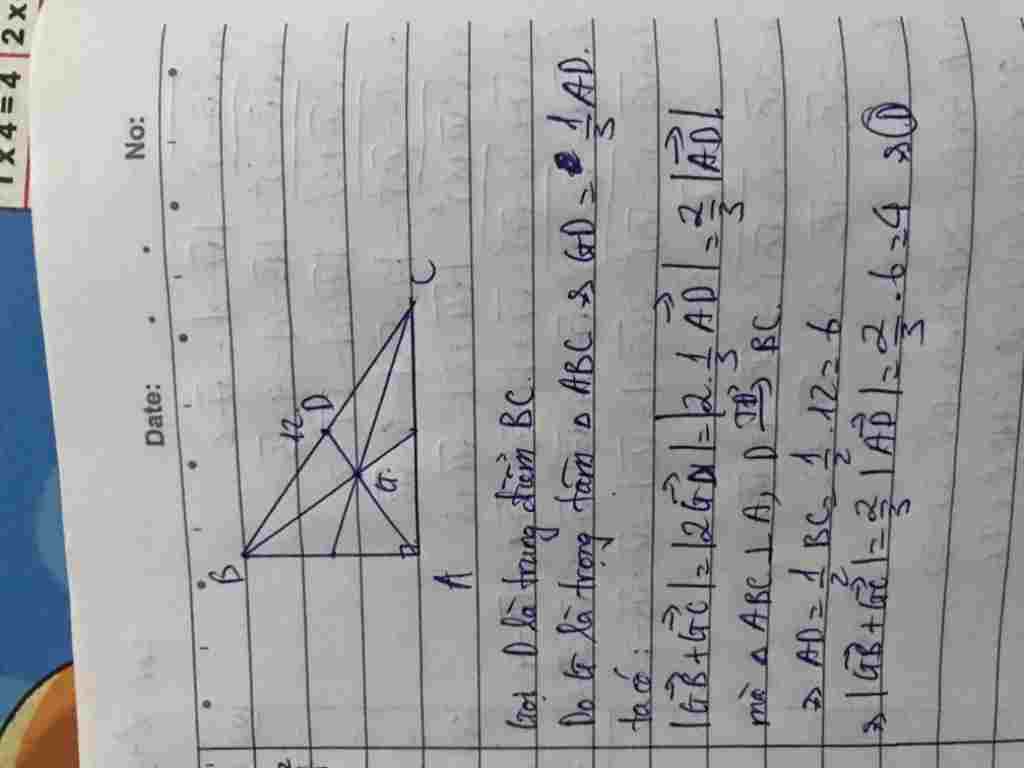 1 x 4 = 4 | 2 x
No:
Date:
B
12
D
G
A
C
Gọi D là trung điểm BC
Do G là trọng tâm △ ABC → GD = 1/3 AD.
ta có:
|GB→ + GC→| = |2GD→| = |2. 1/3 AD→| = 2/3 |AD→|
mà △ ABC ⊥ A, D TĐ BC.
→ AD = 1/2 BC = 1/2 .12 = 6
→ |GB→ + GC→| = 2/3 |AD→| = 2/3 . 6 = 4 → D